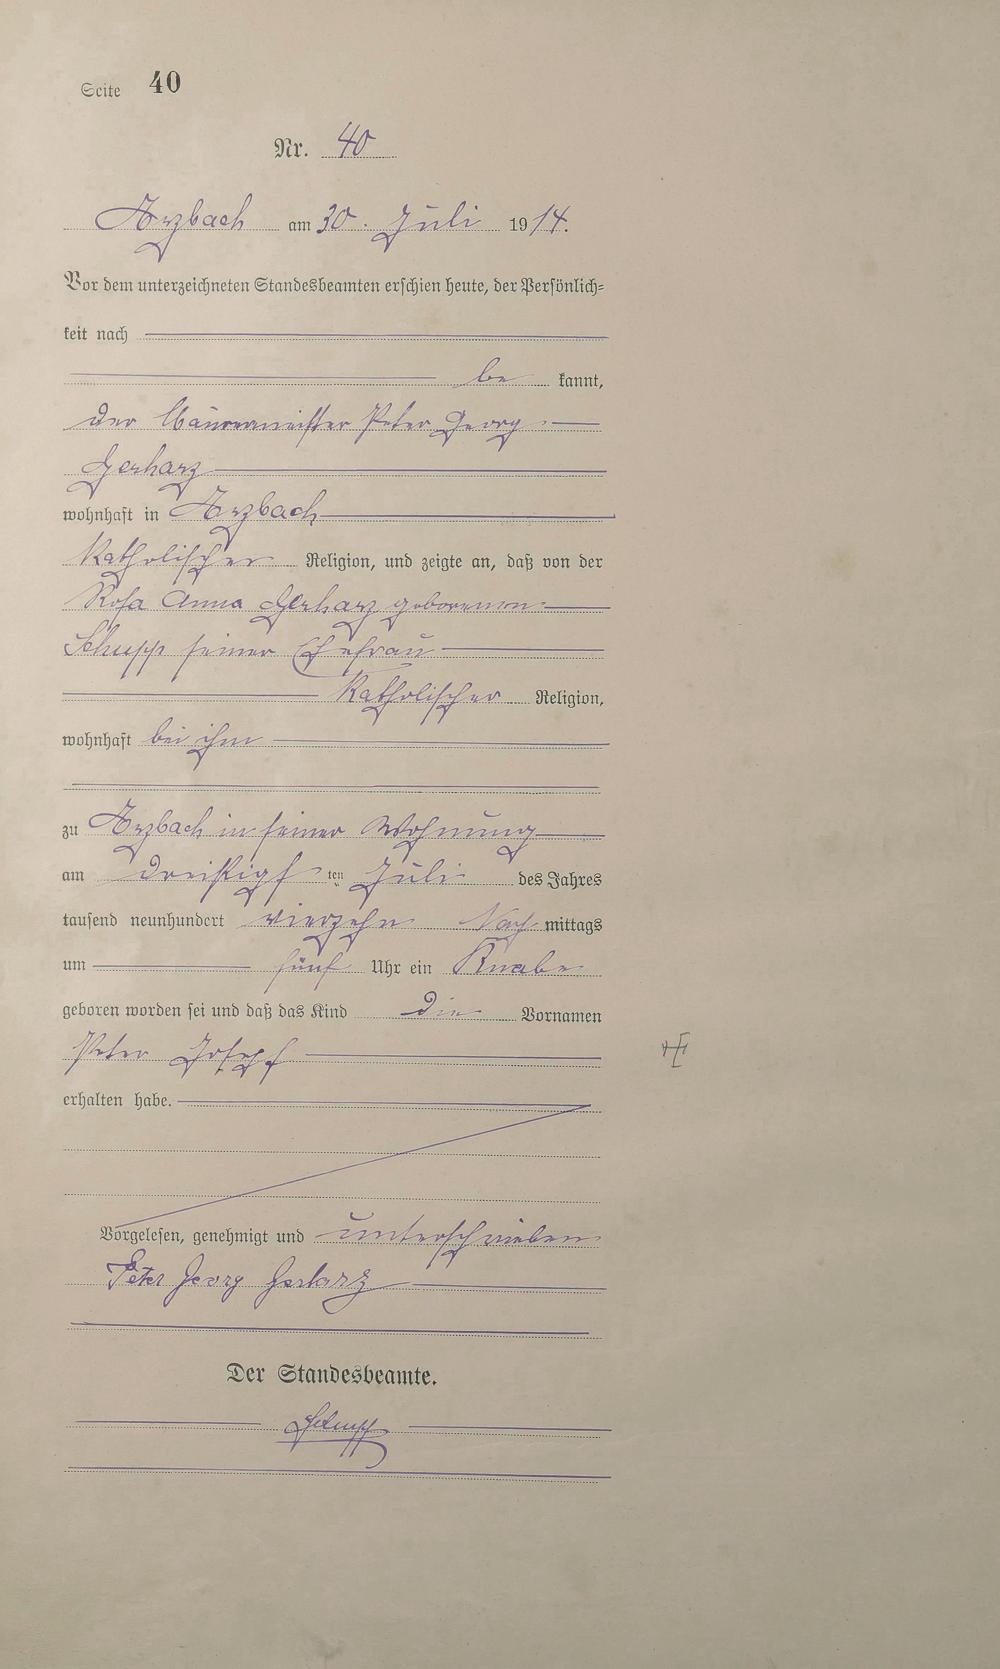 Seite 40
Nr. 40
Arzbach am 30. Juli 1914.
Vor dem unterzeichneten Standesbeamten erschien heute, der Persönlich=
keit nach
be kannt,
der Maurermeister Peter Georg
Gerharz
wohnhaft in Arzbach
katholischer Religion, und zeigte an, daß von der
Rosa Anna Gerharz geborenen
Schupp seiner Ehefrau
katholischer Religion,
wohnhaft bei ihm
zu Arzbach in seiner Wohnung
am dreißigsten Juli des Jahres
tausend neunhundert vierzehn Nach mittags
um fünf Uhr ein Knabe
geboren worden sei und daß das Kind die Vornamen
Peter Joseph
erhalten habe.
Vorgelesen, genehmigt und unterschrieben
Peter Georg Gerharz
Der Standesbeamte.